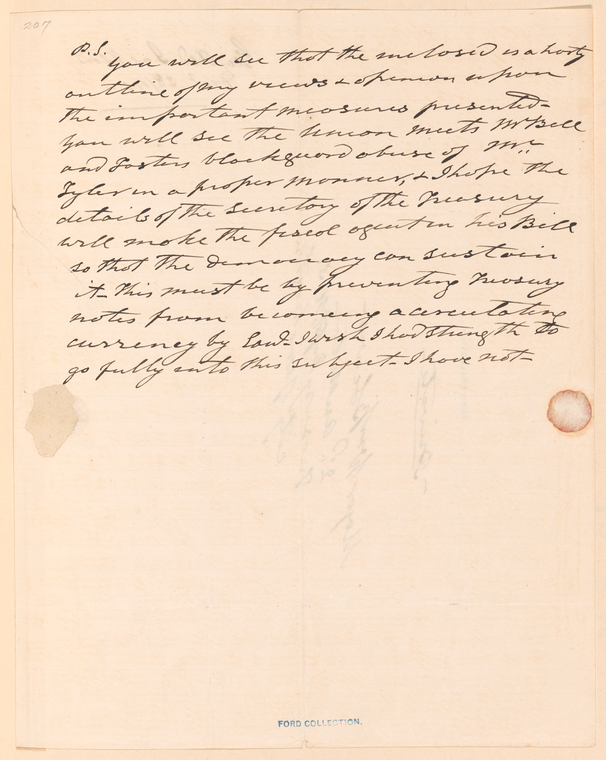 207
P.S.
you will see that the inclosed is a shorty
outline of my views & opinion upon
the important measures presented-
you will see the Union meets Mr Bell
and Fosters blackguard abuse of Mr.
Tyler in a proper manner, & I hope the
details of the Secretary of the Treasury
will make the fiscal agent in his Bill
so that the democracy can sustain
it- This must be by preventing Treasury
notes from becomeing a circulating
currency by Law- I wish I had strength to
go fully into this subject- I have not-
FORD COLLECTION.